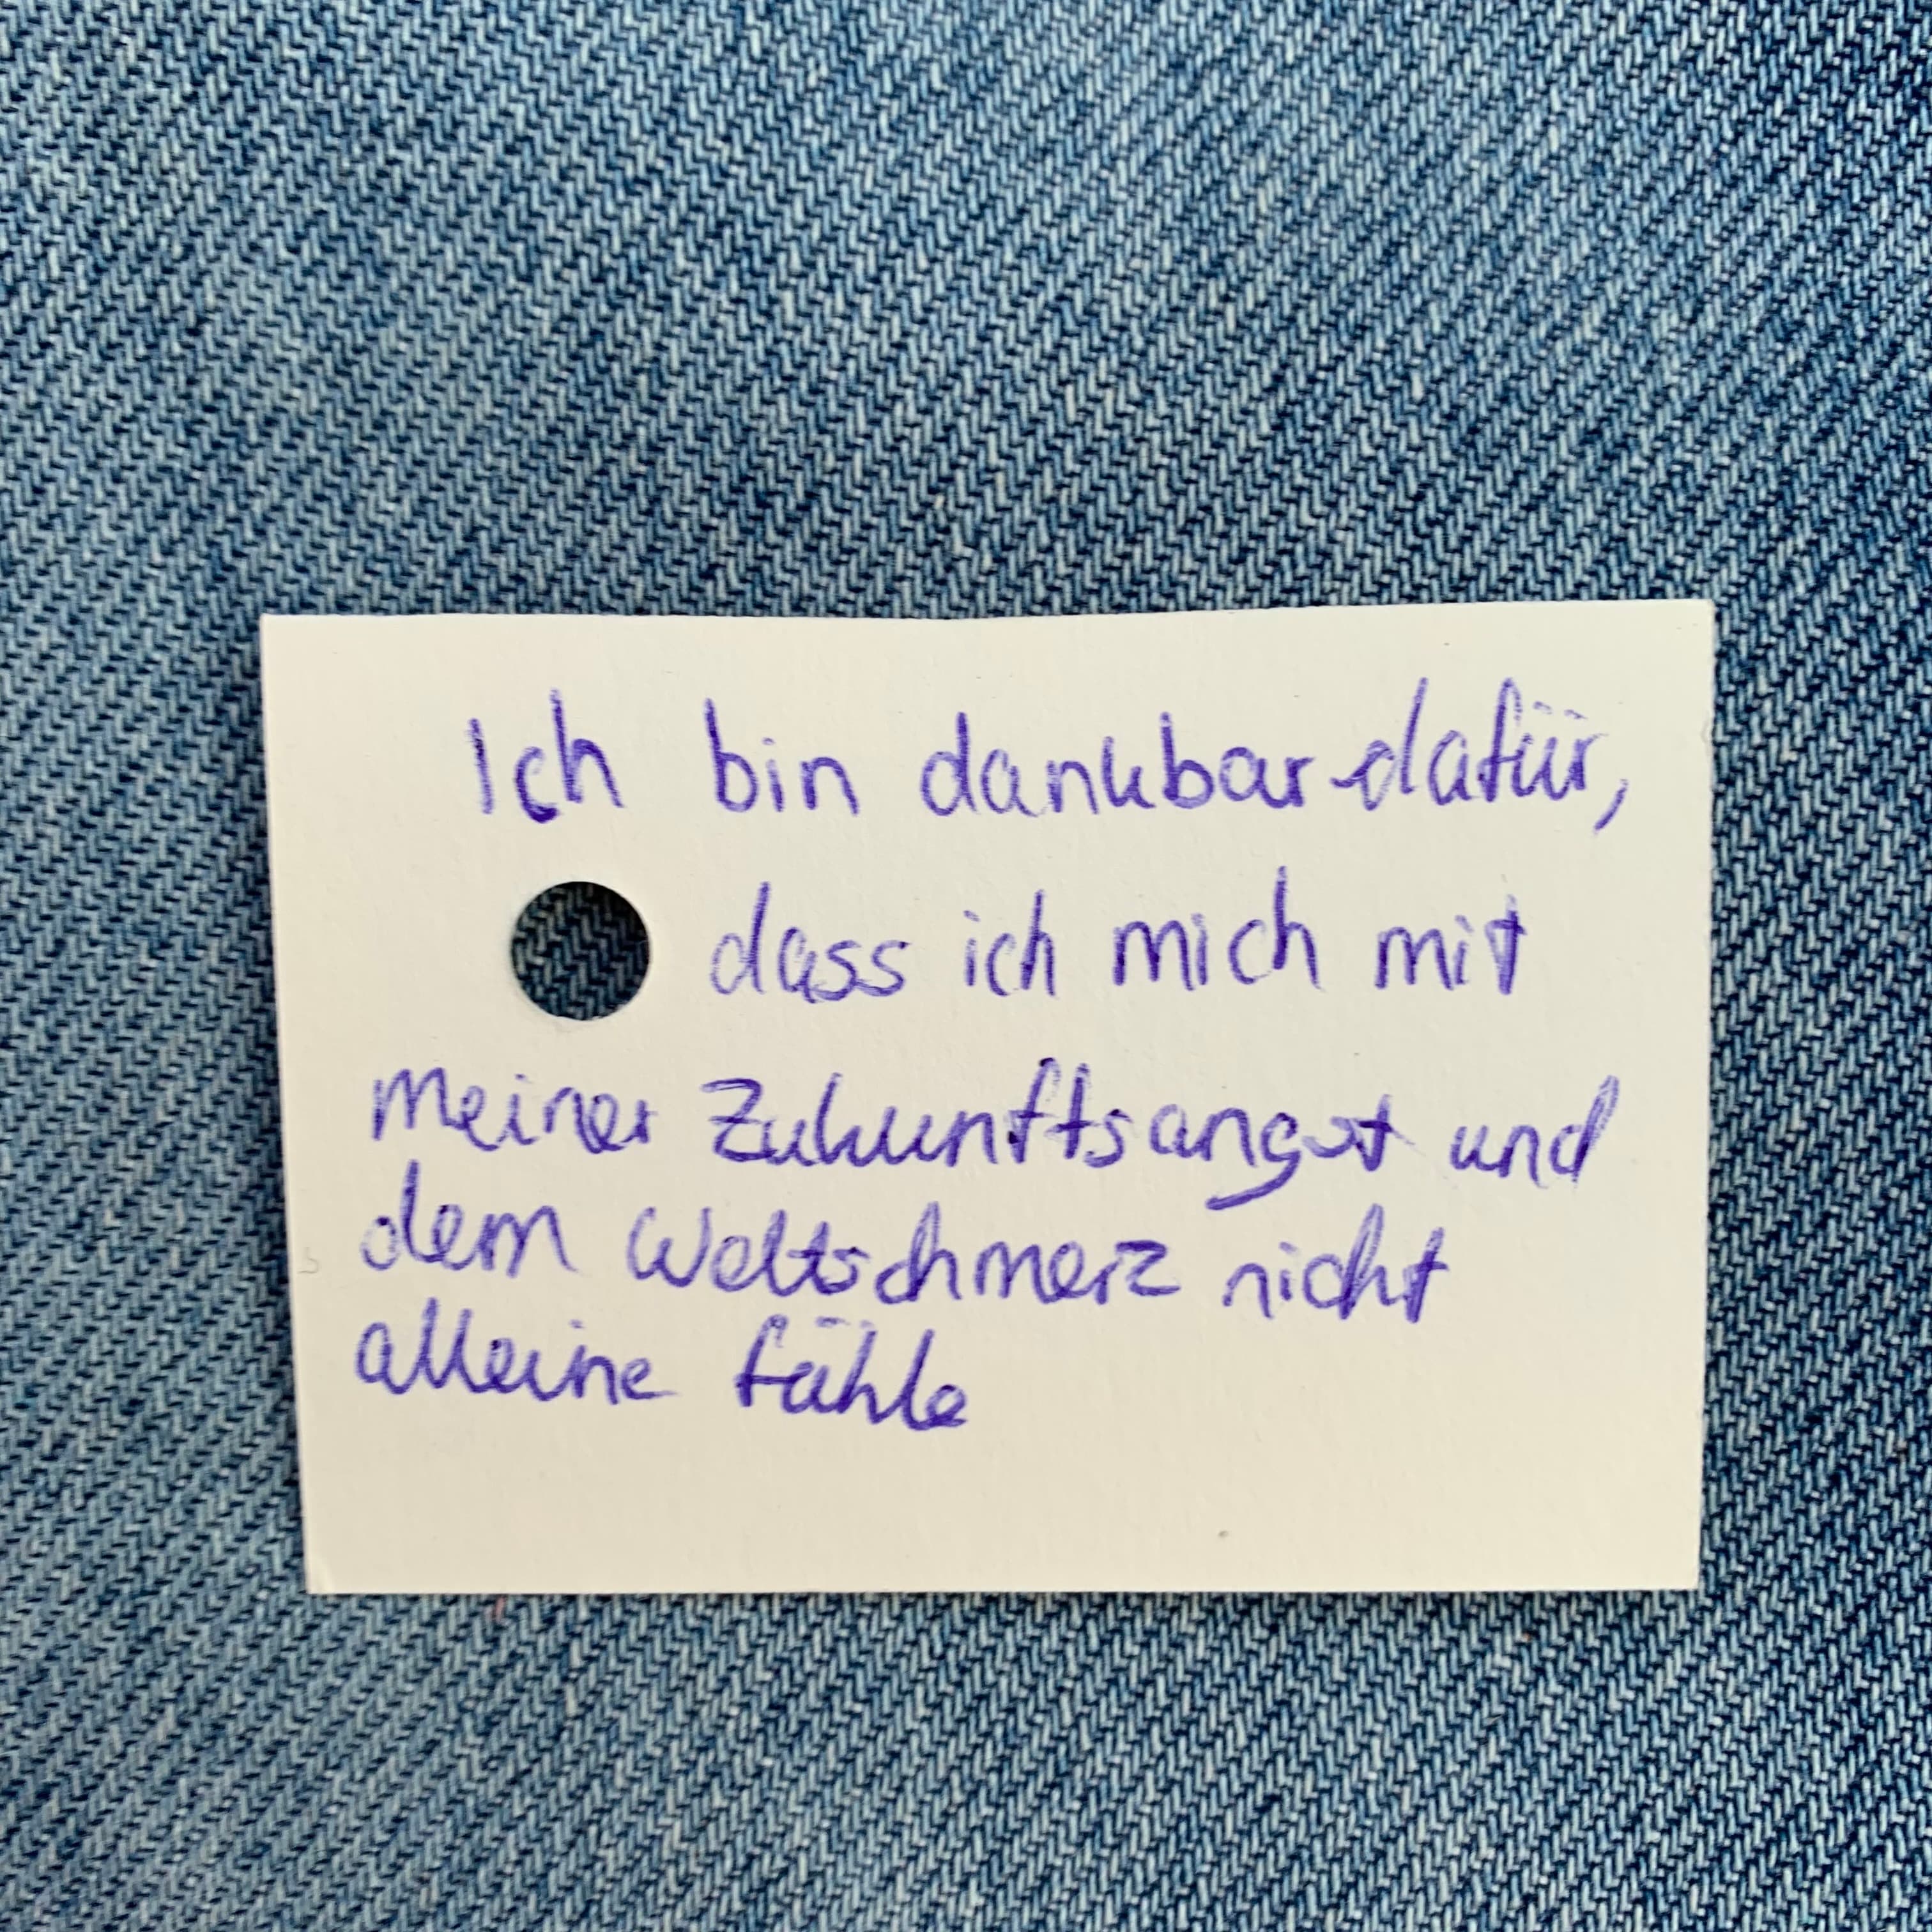 Ich bin dankbar dafür,
dass ich mich mit
meiner Zukunftsangst und
dem Weltschmerz nicht
alleine fühle